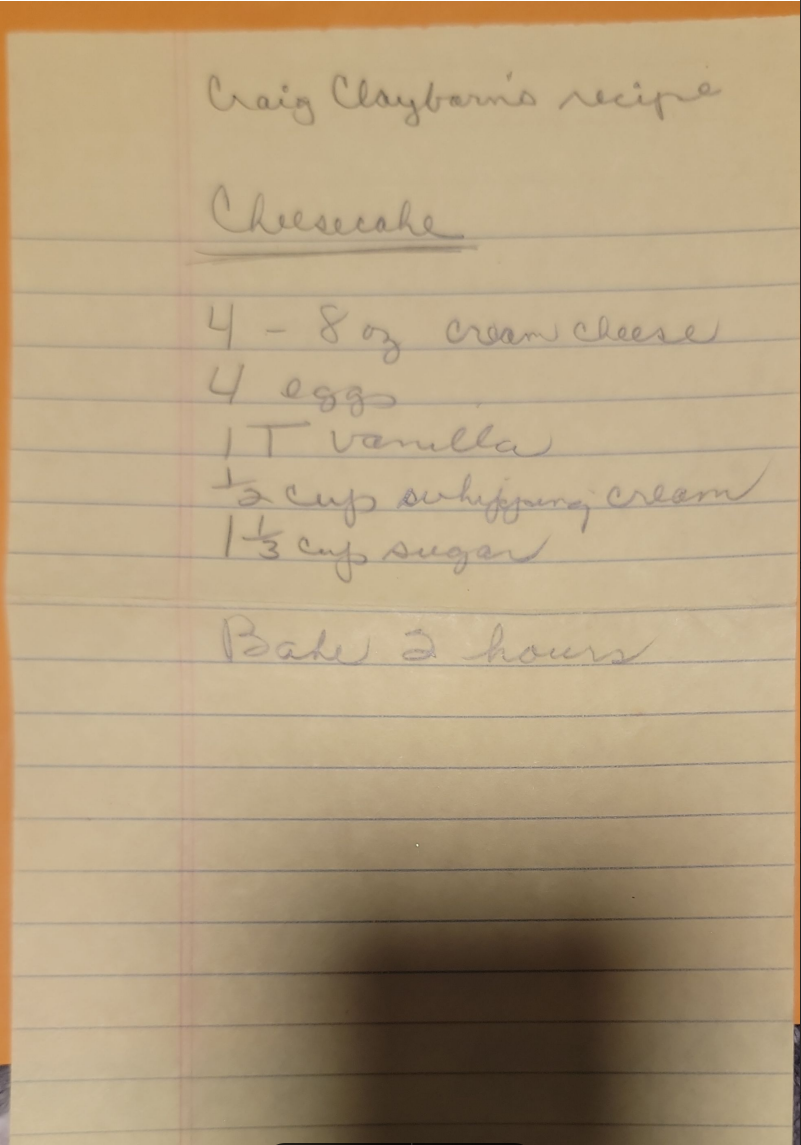 Craig Clayborn's recipe
Cheesecake
4 - 8 oz cream cheese
4 eggs
1 T vanilla
1/2 cup whipping cream
1 1/3 cup sugar
Bake 2 hours